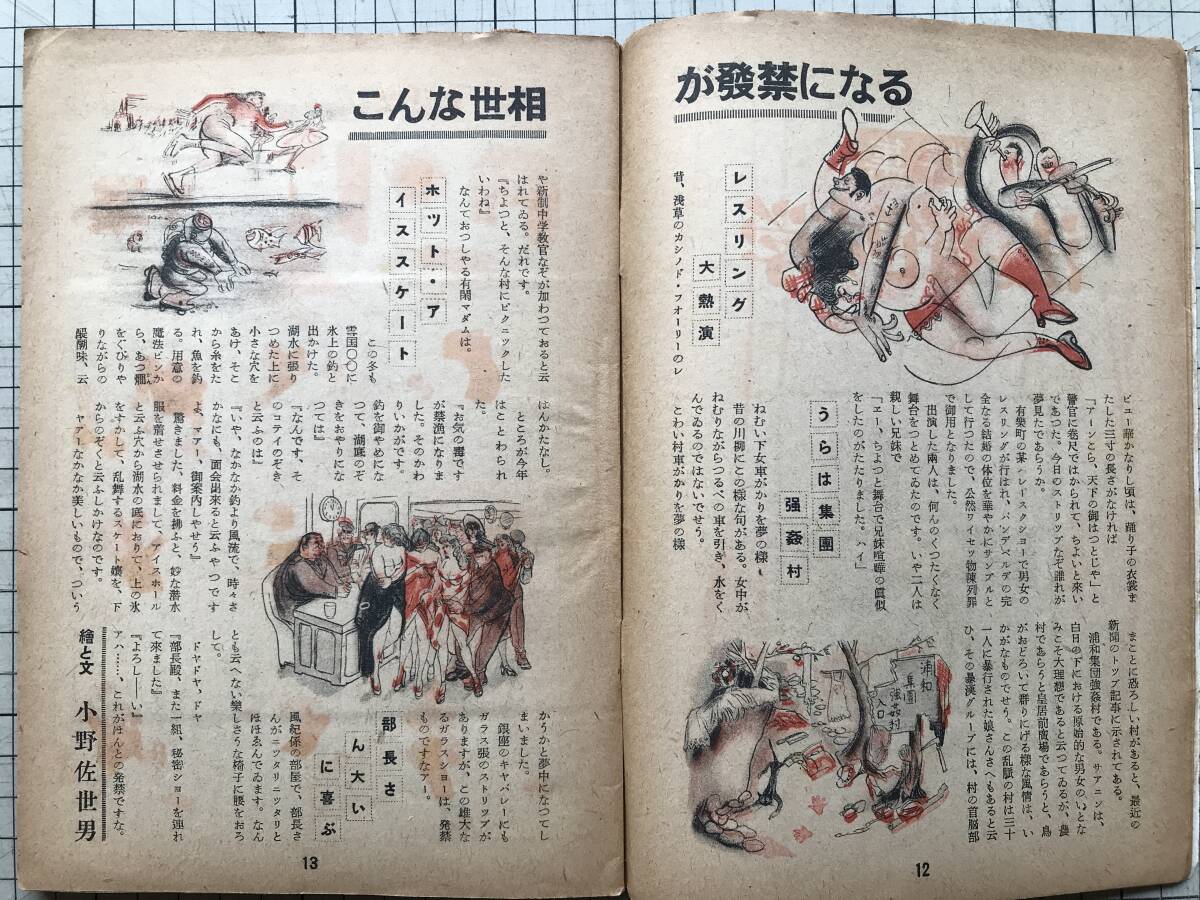 こんな世相
が發禁になる
レスリング
大熱演
昔、浅草のカシノド・フオーリーのレ
ビユー華かなりし頃は、踊り子の衣裳ま
たした三寸の長さがなければ
「アーンこら、天下の御はつとじや」と
警官に卷尺ではかられて、ちよいと來い
であつた。今日のストリツプなぞ誰れが
夢見たであらうか。
有樂町の某ノレースクシヨーで男女の
レスリングが行はれ、バンデベルデの完
全なる結婚の体位を華やかにサンプルと
して行つたので、公然ワイセツ物陳列罪
で御用となりました。
出演した兩人は、何んのくつたくなく
舞台をつとめてゐたのです。いや二人は
親しい兄妹で、
「エー、ちよつと舞台で兄妹喧嘩の眞似
をしたのがたたりました。ハイ」
うらは集團
强姦村
ねむい下女車がかりを夢の様
昔の川柳にこの様な句がある。女中が、
ねむりながらつるべの車を引き、水をく
んでゐるのではないでせう。
こわい村車がかりを夢の様
まことに恐ろしい村があると、最近の
新聞のトツプ記事に示されてある。
浦和集団強姦村である。サアニンは、
白日の下における原始的な男女のいとな
みこそ大理想であると云つてゐるが、農
村であらうと皇居前廣場であらうと、鳥
がおどろいて群りにげる様な風情は、い
かがなものでせう。この乱賦の村は三十
一人に暴行された娘さんさへもあると云
ひ、その暴漢グループには、村の首脳部
浦和
集團
強姦村
入口
12
や新制中学教官なぞが加わつておると云
はれてゐる。だれです。
『ちよつと、そんな村にピクニツクした
いわね』
なんておつしやる有閑マダムは。
ホツト・ア
イススケート
この冬も
雪国〇〇に
氷上の釣と
出かけた。
湖水に張り
つめた上に
小さな穴を
あけ、そこ
から糸をた
れ、魚を釣
る。用意の
魔法ビンか
ら、あつ燗
をぐびりや
りながらの
醍醐味、云
はんかたなし。
ところが今年
はことわられ
た。
『お気の毒です
が禁漁になりま
した。そのかわ
りいかがです。
釣を御やめにな
つて、湖底のぞ
きをおやりにな
つては』
『なんです、そ
のコテイのぞき
と云ふのは』
『いや、なかなか釣より風流で、時々さ
かなにも、面会出來ると云ふやつです
よ、マアー、御案内しやせう』
驚きました、料金を拂ふと、妙な潜水
服を着せさせられまして、アイスホール
と云ふ穴から湖水の底におりて、上の氷
をすかして、乱舞するスケート孃を、下
からのぞくと云ふしかけなのです。
ヤアーなかなか美しいもので、ついう
かうかと夢中になつてし
まいました。
銀座のキヤバレーにも
ガラス張のストリツプが
ありますが、この雄大な
るガラスシヨーは、発禁
ものですなアー。
部長さ
ん大い
に喜ぶ
風紀係の部屋で、部長さ
んがニツタリニツタリと
ほほゑんでゐます。なん
しさうな椅子に腰をおろ
とも云へない樂
して。
ドヤドヤ、ドヤ
『部長殿、また一組、秘密シヨーを連れ
て來ました』
『よろし——い』
アハ……、これがほんとの発禁ですな。
繪と文 小野佐世男
13